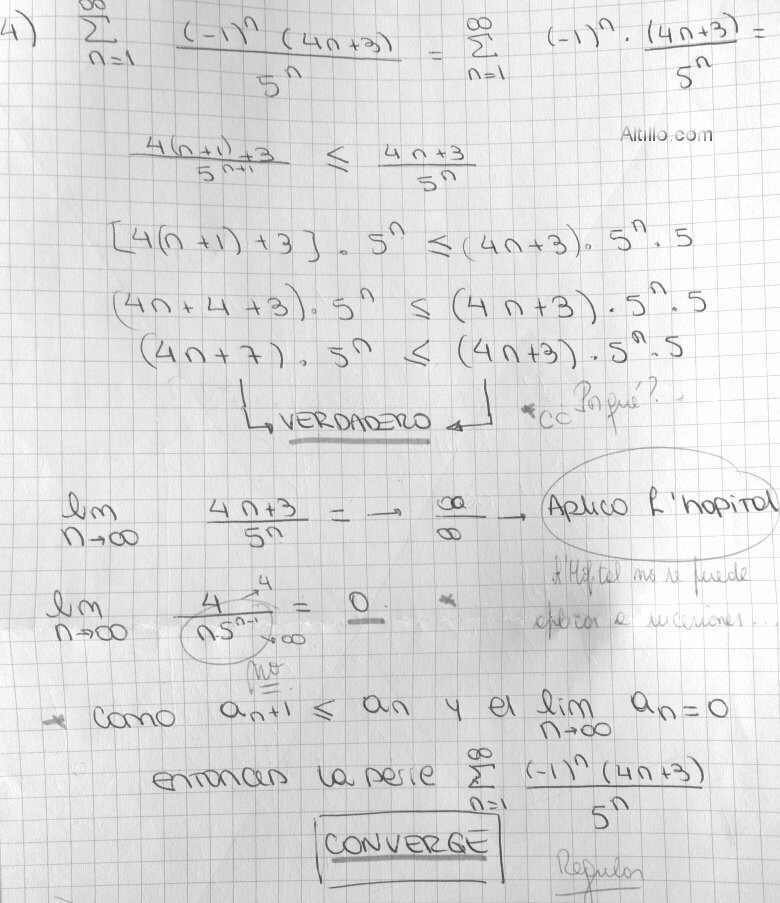 4) ∞ ∑ n=1 (-1)ⁿ (4n+3) / 5ⁿ = ∞ ∑ n=1 (-1)ⁿ · (4n+3) / 5ⁿ =
Altillo.com
4(n+1)+3 / 5ⁿ⁺¹ ≤ 4n+3 / 5ⁿ
[4(n+1)+3] · 5ⁿ ≤ (4n+3) · 5ⁿ · 5
(4n+4+3) · 5ⁿ ≤ (4n+3) · 5ⁿ · 5
(4n+7) · 5ⁿ ≤ (4n+3) · 5ⁿ · 5
VERDADERO * Porqué?
lim n→∞ 4n+3 / 5ⁿ = → ∞/∞ → Aplico L'hopital
L'Hopital no se puede
aplicar a sucesiones...
lim n→∞ 4 →4 / n5ⁿ⁻¹ →∞ = 0 *
no
* Como aₙ₊₁ ≤ aₙ y el lim n→∞ aₙ = 0
entonces la serie ∞ ∑ n=1 (-1)ⁿ (4n+3) / 5ⁿ
CONVERGE
Regular